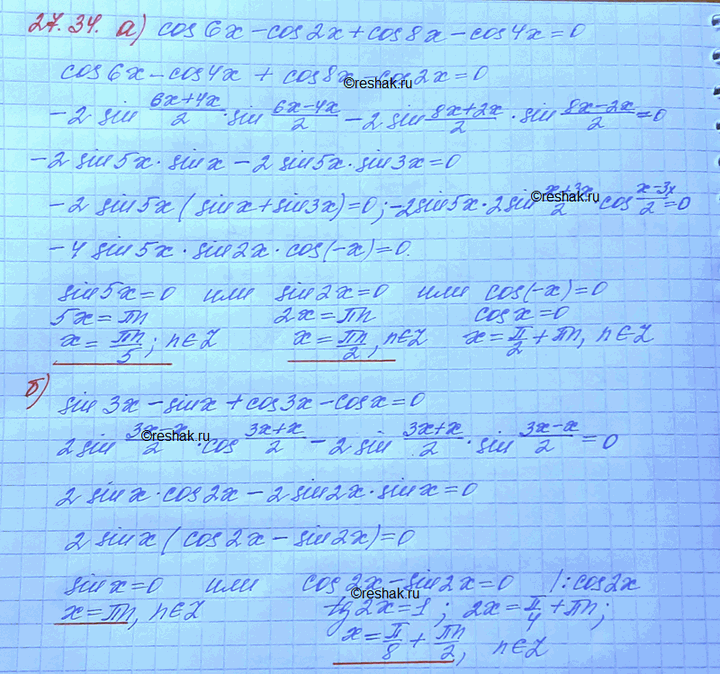 27.34. а) cos6x-cos2x+cos8x-cos4x=0
cos6x-cos4x+cos8x-cos2x=0
-2 sin (6x+4x)/2 · sin (6x-4x)/2 - 2 sin (8x+2x)/2 · sin (8x-2x)/2 = 0
-2 sin5x·sinx-2 sin5x·sin3x=0
-2 sin5x(sinx+sin3x)=0; -2sin5x·2sin (x+3x)/2 cos (x-3x)/2 = 0
-4 sin5x·sin2x·cos(-x)=0.
sin5x=0 или sin2x=0 или cos(-x)=0
5x=πn 2x=πn cosx=0
x=πn/5; n∈Z x=πn/2, n∈Z x=π/2+πn, n∈Z
б) sin3x-sinx+cos3x-cosx=0
2 sin (3x-x)/2 · cos (3x+x)/2 - 2 sin (3x+x)/2 · sin (3x-x)/2 = 0
2 sinx·cos2x-2 sin2x·sinx=0
2 sinx(cos2x-sin2x)=0
sinx=0 или cos2x-sin2x=0 |:cos2x
x=πn, n∈Z tg2x=1; 2x=π/4+πn;
x=π/8+πn/2, n∈Z
©reshak.ru
©reshak.ru
©reshak.ru
©reshak.ru